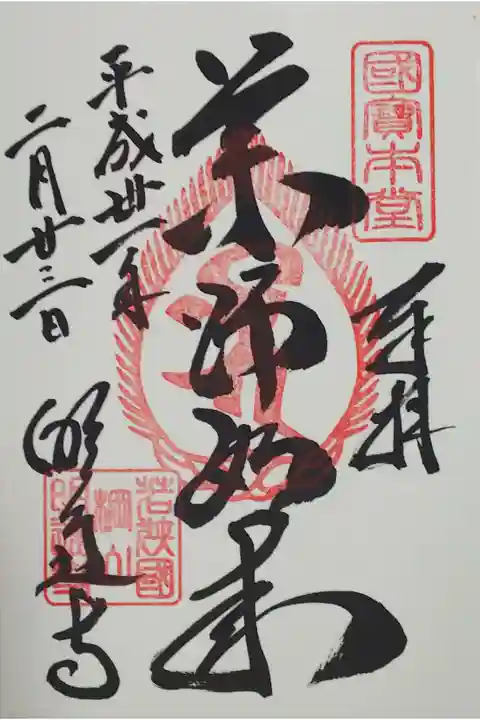 國寶本堂
奉拝
薬師如来
平成卅一年
二月廿三日
明通寺
若狭國
棡山
明通寺